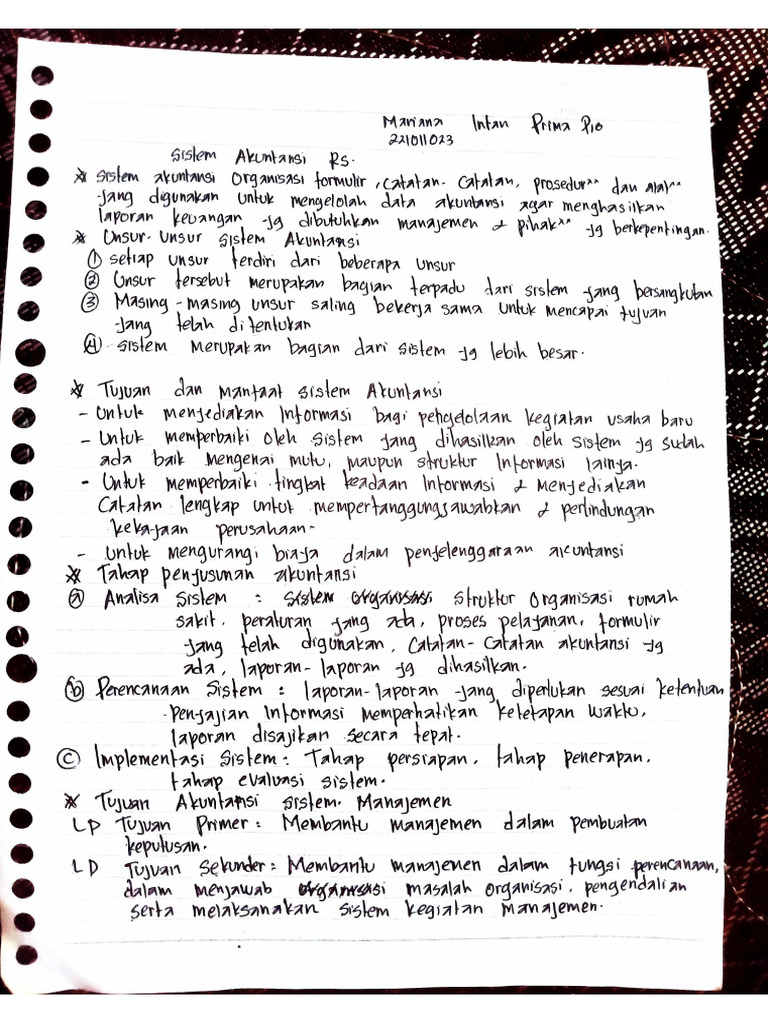 Mariana Intan Prima Pio
221011023
Sistem Akuntansi Rs.
* Sistem akuntansi Organisasi formulir, Catatan-Catatan, prosedur** dan alat**
yang digunakan untuk mengelolah data akuntansi agar menghasilkan
laporan keuangan yg dibutuhkan manajemen & pihak** yg berkepentingan.
* Unsur-Unsur Sistem Akuntansi
① setiap unsur terdiri dari beberapa unsur
② Unsur tersebut merupakan bagian terpadu dari sistem yang bersangkutan
③ Masing-masing unsur saling bekerja sama untuk mencapai tujuan
yang telah ditentukan
④ sistem merupakan bagian dari sistem yg lebih besar.
* Tujuan dan Manfaat sistem Akuntansi
- Untuk menyediakan Informasi bagi pengelolaan kegiatan usaha baru
- Untuk memperbaiki oleh sistem yang dihasilkan oleh sistem yg sudah
ada baik mengenai mutu, maupun struktur Informasi lainya.
- Untuk memperbaiki tingkat keadaan Informasi & Menyediakan
Catatan lengkap untuk mempertanggungjawabkan & perlindungan
kekayaan perusahaan-
- Untuk mengurangi biaya dalam penyelenggaraan akuntansi
* Tahap penyusunan akuntansi
ⓐ Analisa Sistem : sistem organisasi struktur Organisasi rumah
sakit, peraturan yang ada, proses pelayanan, formulir
yang telah digunakan, Catatan-Catatan akuntansi yg
ada, laporan-laporan yg dihasilkan.
ⓑ Perencanaan Sistem : laporan-laporan yang diperlukan sesuai ketentuan
Penyajian Informasi memperhatikan ketetapan waktu,
laporan disajikan secara tepat.
ⓒ Implementasi Sistem : Tahap persiapan, tahap penerapan,
tahap evaluasi sistem.
* Tujuan Akuntansi sistem Manajemen
LD Tujuan Primer : Membantu manajemen dalam pembuatan
keputusan.
LD Tujuan Sekunder : Membantu manajemen dalam fungsi perencanaan,
dalam menjawab organisasi masalah organisasi, pengendalian
serta melaksanakan sistem kegiatan manajemen.